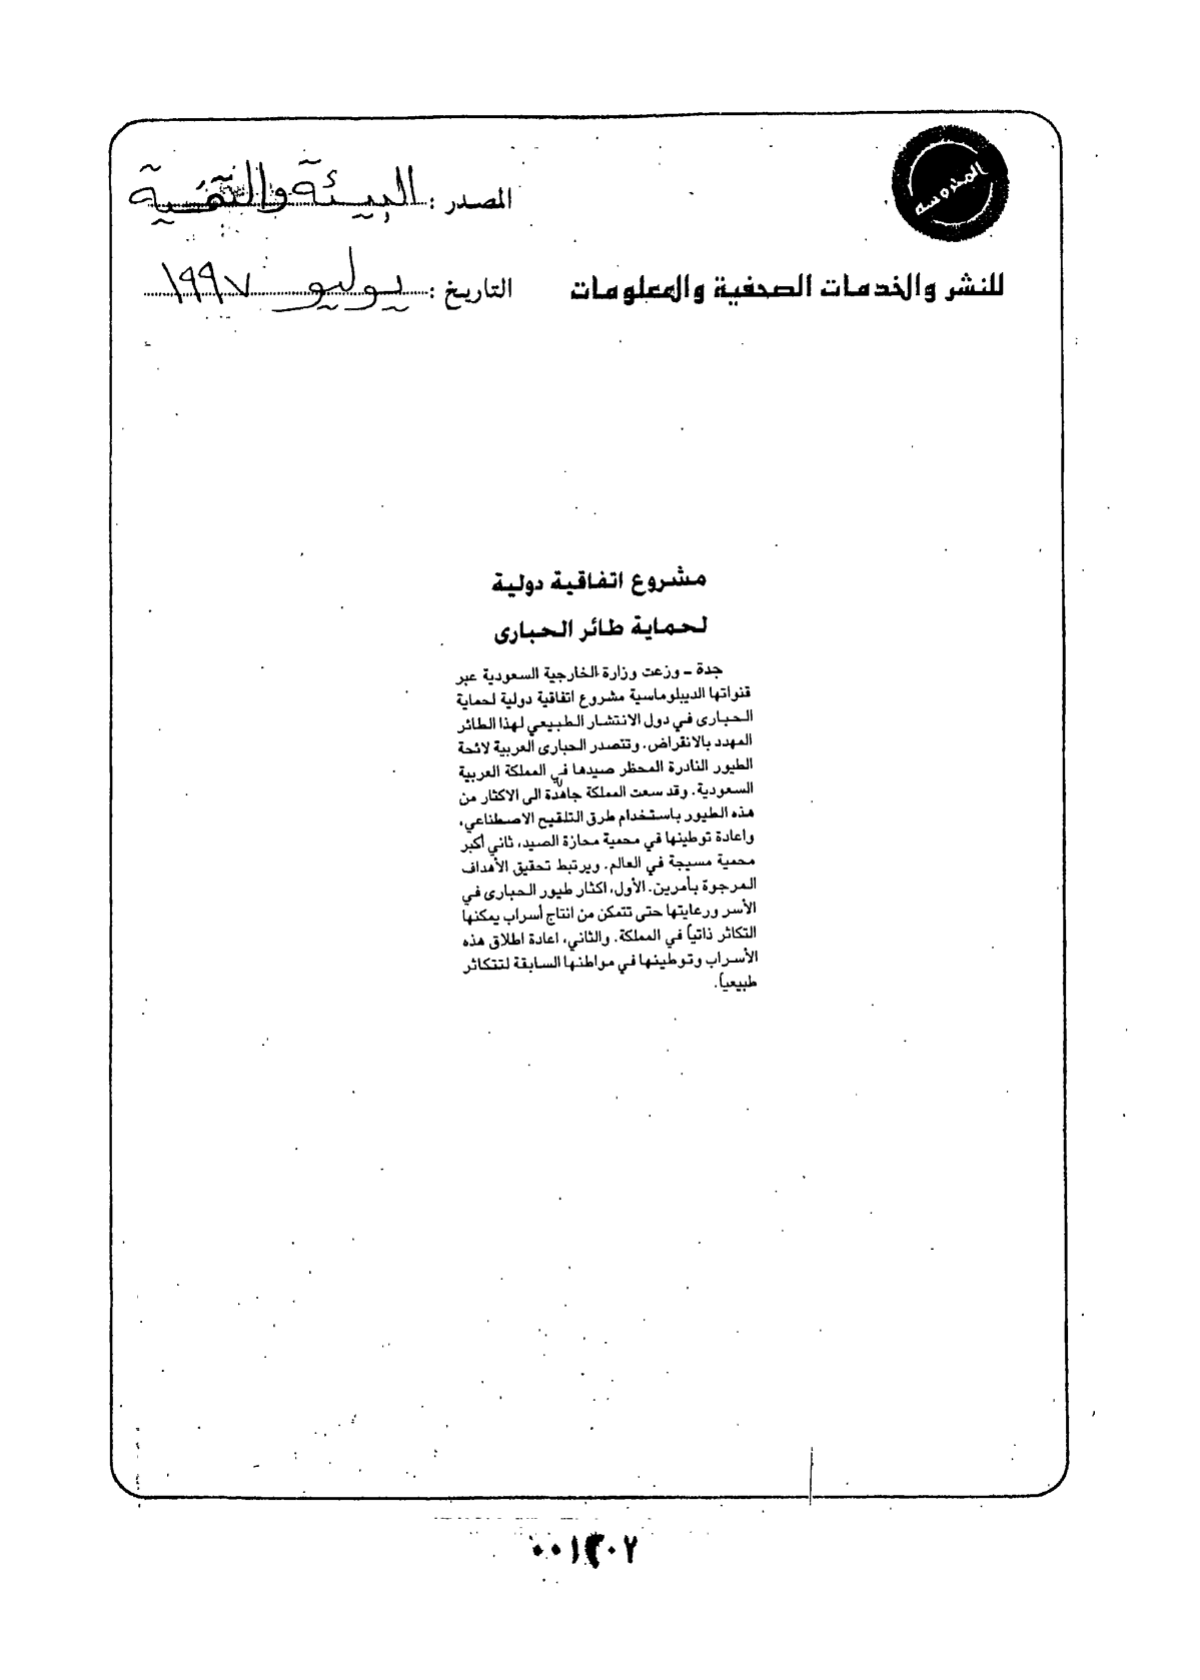 المحروسة
المصدر : البيئة والتنمية
للنشر والخدمات الصحفية والمعلومات
التاريخ : يوليو ١٩٩٧
مشروع اتفاقية دولية
لحماية طائر الحبارى
جدة – وزعت وزارة الخارجية السعودية عبر
قنواتها الديبلوماسية مشروع اتفاقية دولية لحماية
الحبارى في دول الانتشار الطبيعي لهذا الطائر
المهدد بالانقراض. وتتصدر الحبارى العربية لائحة
الطيور النادرة المحظر صيدها في المملكة العربية
السعودية. وقد سعت المملكة جاهدة الى الاكثار من
هذه الطيور باستخدام طرق التلقيح الاصطناعي،
واعادة توطينها في محمية محازة الصيد، ثاني أكبر
محمية مسيجة في العالم. ويرتبط تحقيق الأهداف
المرجوة بأمرين. الأول، اكثار طيور الحبارى في
الأسر ورعايتها حتى تتمكن من انتاج أسراب يمكنها
التكاثر ذاتياً في المملكة. والثاني، اعادة اطلاق هذه
الأسراب وتوطينها في مواطنها السابقة لتتكاثر
طبيعياً.